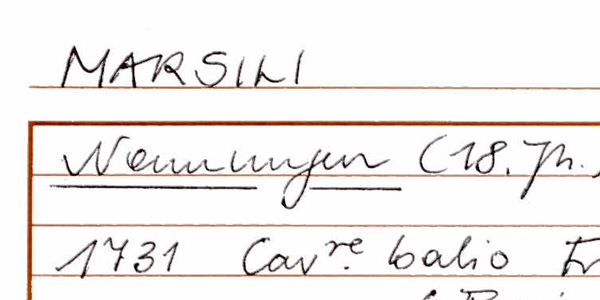 MARSILI
Nennungen (18. Jh.)
1731 Cav.re balio Fr